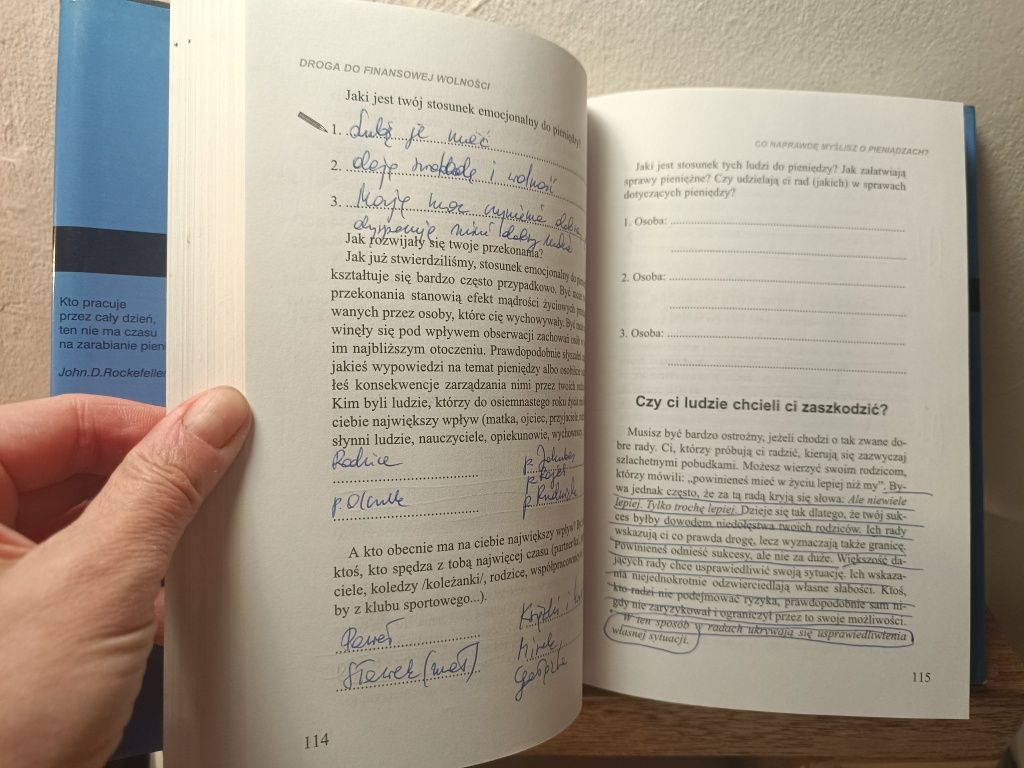 Kto pracuje
przez cały dzień,
ten nie ma czasu
na zarabianie pien
John.D.Rockefeller
DROGA DO FINANSOWEJ WOLNOŚCI
Jaki jest twój stosunek emocjonalny do pieniędzy?
1. Lubię je mieć
2. dają swobodę i wolność
3. Mają moc
dysponują nimi dobrzy ludzie
Jak rozwijały się twoje przekonania?
Jak już stwierdziliśmy, stosunek emocjonalny do
kształtuje się bardzo często przypadkowo. Być może
przekonania stanowią efekt mądrości życiowych
wanych przez osoby, które cię wychowywały. Być może
winęły się pod wpływem obserwacji zachowań osób w
im najbliższym otoczeniu. Prawdopodobnie słyszałeś
jakieś wypowiedzi na temat pieniędzy albo osobiście
łeś konsekwencje zarządzania nimi przez twoich
Kim byli ludzie, którzy do osiemnastego roku życia
ciebie największy wpływ (matka, ojciec, przyjaciele,
słynni ludzie, nauczyciele, opiekunowie, wychowawcy
Rodzice
p.
A kto obecnie ma na ciebie największy wpływ?
ktoś, kto spędza z tobą najwięcej czasu (partnerka,
ciele, koledzy /koleżanki/, rodzice, współpracownicy
by z klubu sportowego...).
Paweł
Sławek (mąż)
Mirek,
114
CO NAPRAWDĘ MYŚLISZ O PIENIĄDZACH?
Jaki jest stosunek tych ludzi do pieniędzy? Jak załatwiają
sprawy pieniężne? Czy udzielają ci rad (jakich) w sprawach
dotyczących pieniędzy?
1. Osoba:
2. Osoba:
3. Osoba:
Czy ci ludzie chcieli ci zaszkodzić?
Musisz być bardzo ostrożny, jeżeli chodzi o tak zwane do-
bre rady. Ci, którzy próbują ci radzić, kierują się zazwyczaj
szlachetnymi pobudkami. Możesz wierzyć swoim rodzicom,
którzy mówili: „powinieneś mieć w życiu lepiej niż my". By-
wa jednak często, że za tą radą kryją się słowa: Ale niewiele
lepiej. Tylko trochę lepiej. Dzieje się tak dlatego, że twój suk-
ces byłby dowodem niedołęstwa twoich rodziców. Ich rady
wskazują ci co prawda drogę, lecz wyznaczają także granicę.
Powinieneś odnieść sukcesy, ale nie za duże. Większość da-
jących rady chce usprawiedliwić swoją sytuację. Ich wskaza-
nia niejednokrotnie odzwierciedlają własne słabości. Ktoś,
kto radzi nie podejmować ryzyka, prawdopodobnie sam ni-
gdy nie zaryzykował i ograniczył przez to swoje możliwości.
W ten sposób w radach ukrywają się usprawiedliwienia
własnej sytuacji.
115